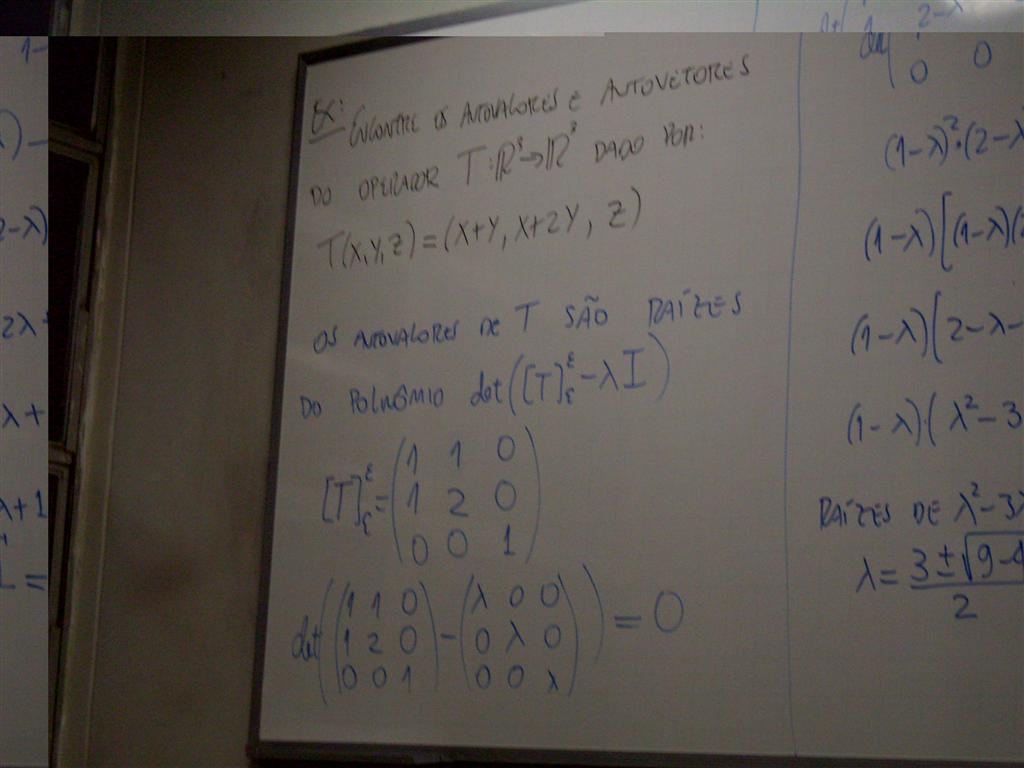 EX: ENCONTRE OS AUTOVALORES E AUTOVETORES
DO OPERADOR T:ℝ³→ℝ³ DADO POR:
T(X,Y,Z)=(X+Y, X+2Y, Z)
OS AUTOVALORES DE T SÃO RAÍZES
DO POLINÔMIO det([T]^ε_ε - λI)
[T]^ε_ε = (1 1 0
1 2 0
0 0 1)
det((1 1 0
1 2 0
0 0 1) - (λ 0 0
0 λ 0
0 0 λ)) = 0
2-λ
0 0
(1-λ)²·(2-λ
(1-λ)[(1-λ)(2
(1-λ)[2-λ-
(1-λ)·(λ²-3
RAÍZES DE λ²-3λ
λ = 3±√9-4
2
1-
)-
2-λ)
2λ
λ+
λ+1
=